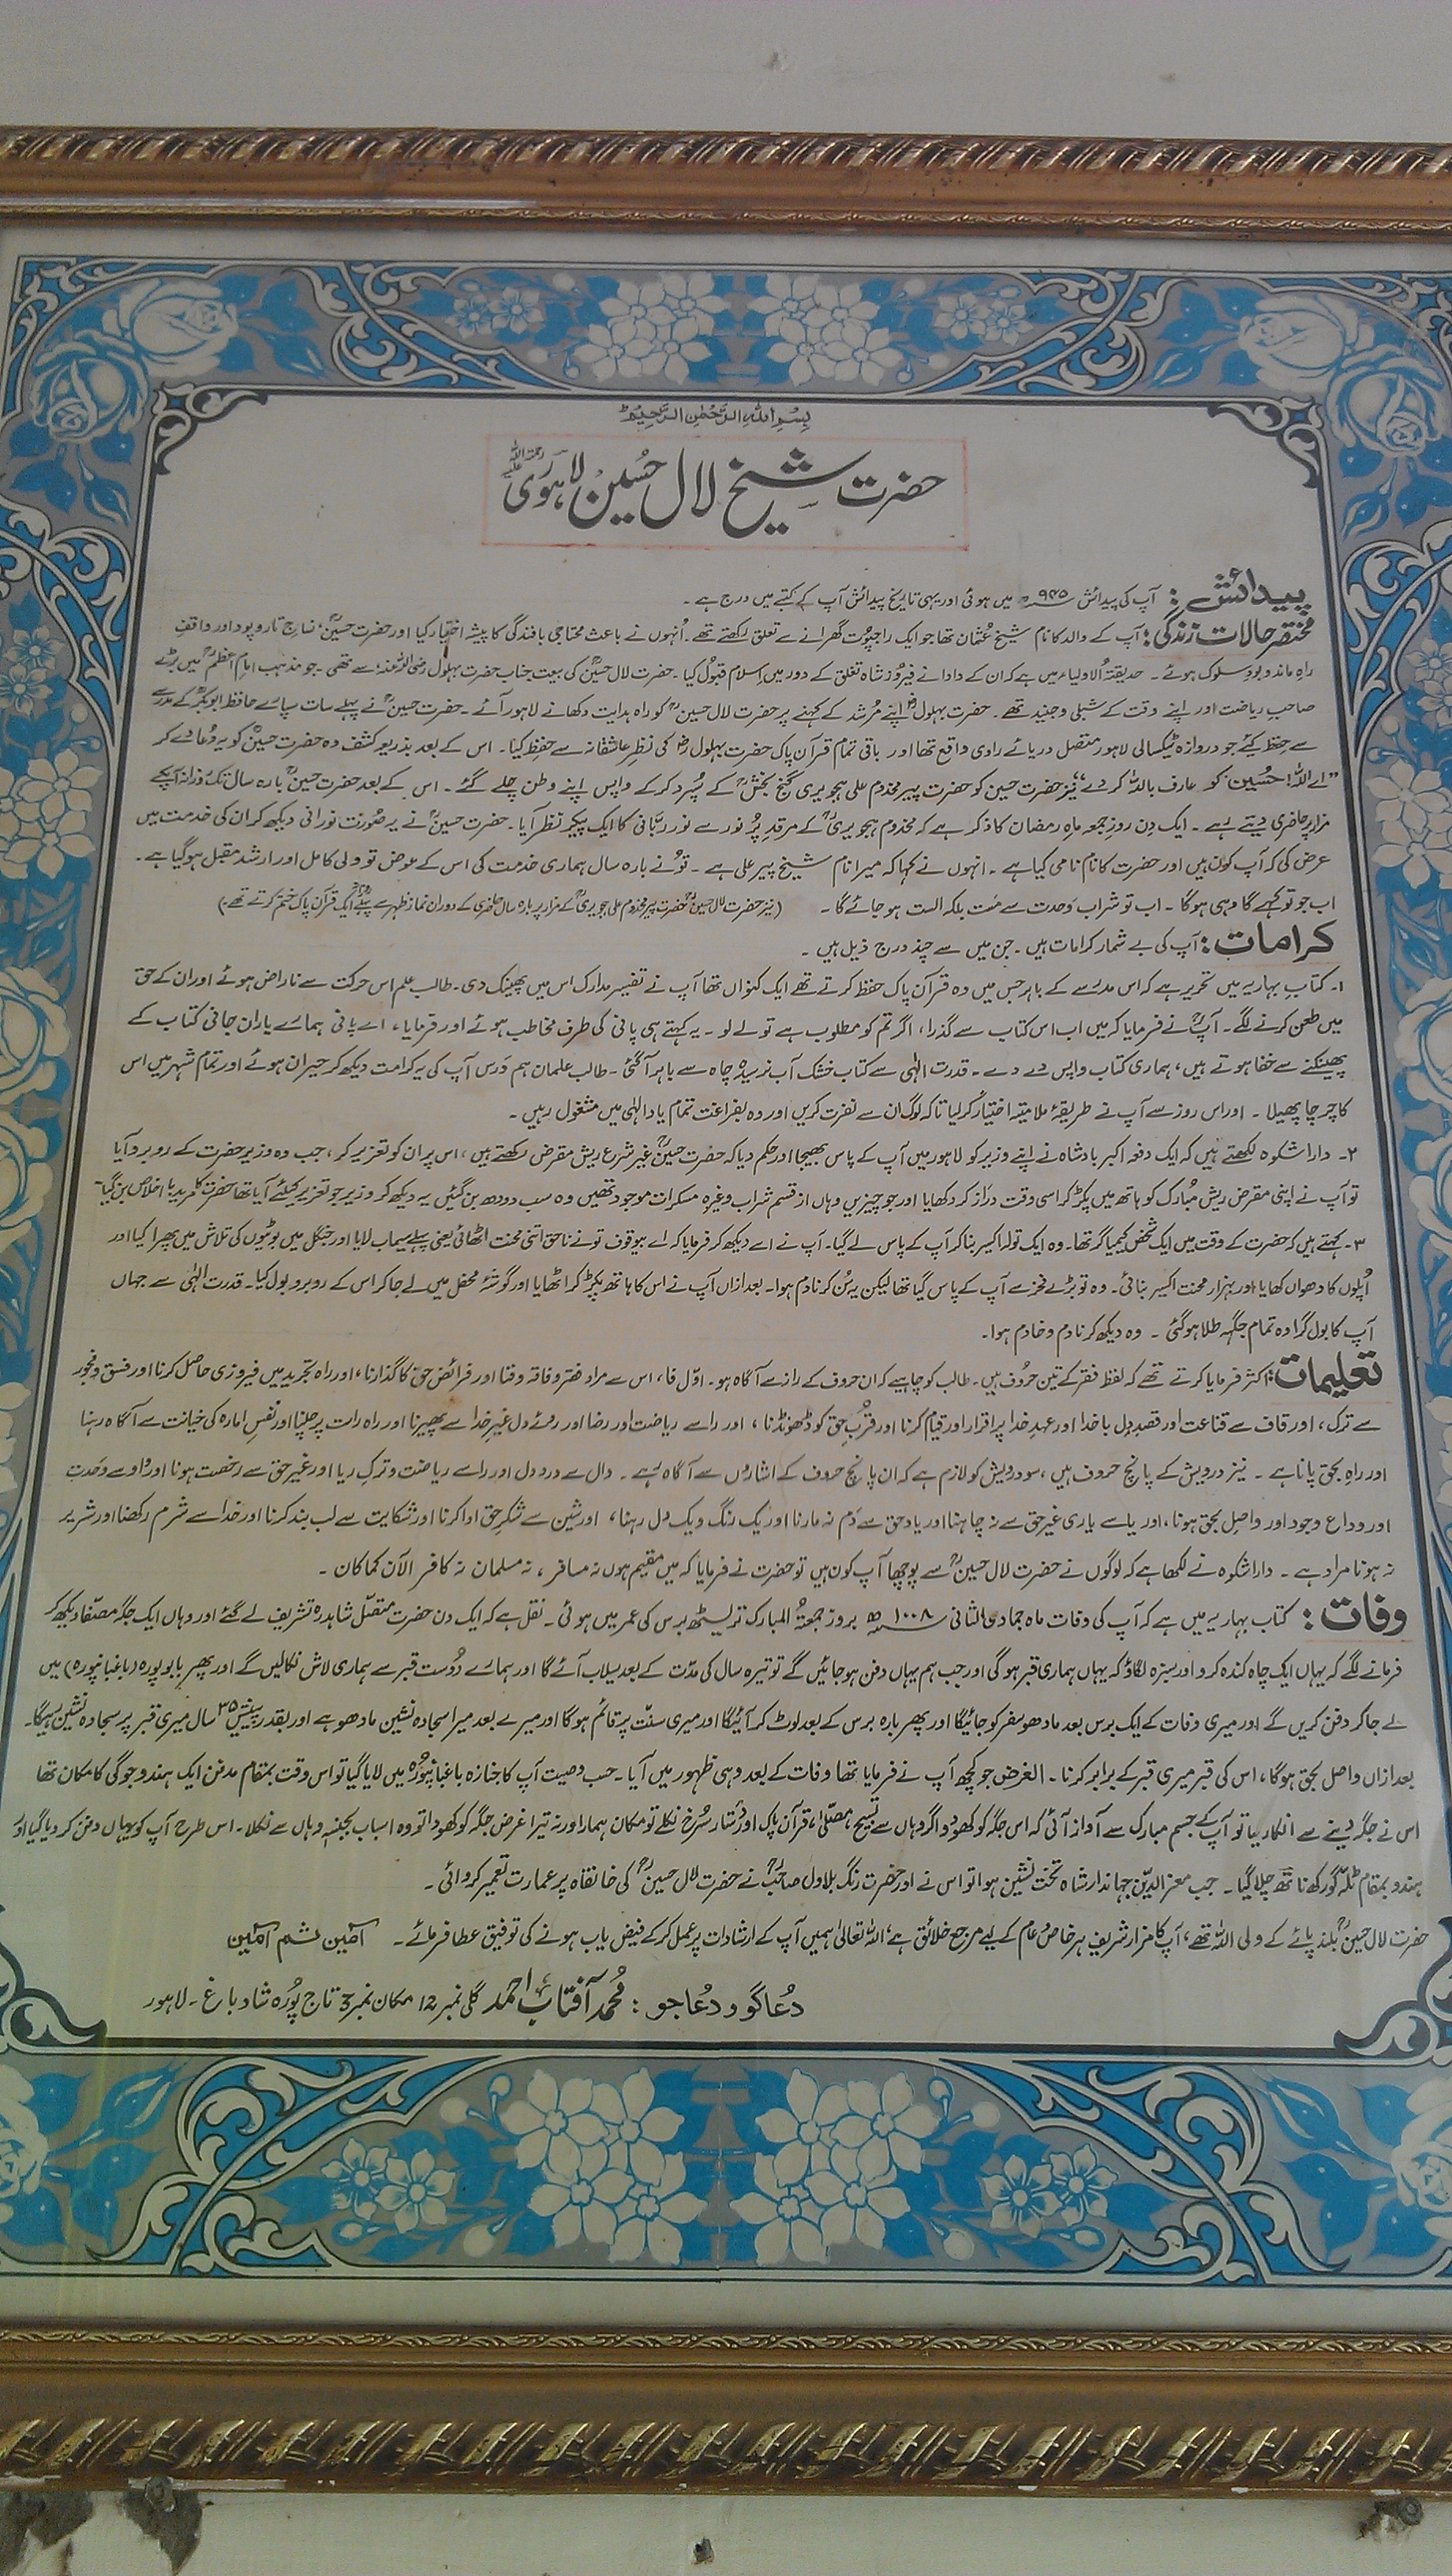 بِسْمِ اللهِ الرَّحْمٰنِ الرَّحِيْمِ
حضرت شیخ لال حسین لاہوری رحمۃ اللہ علیہ
پیدائش : آپ کی پیدائش ۹۴۵ھ میں ہوئی اور یہی تاریخ پیدائش آپ کے کتبے میں درج ہے ۔
مختصر حالات زندگی : آپ کے والد کا نام شیخ عثمان تھا جو ایک راجپوت گھرانے سے تعلق رکھتے تھے۔ اُنہوں نے باعث محتاجی بافندگی کا پیشہ اختیار کیا اور حضرت حسینؒ، نساج تار و پود اور واقفِ
راہِ ماند و بود سلوک ہوئے ۔ حدیقۃ الاولیاء میں ہے کہ ان کے دادا نے فیروز شاہ تغلق کے دور میں اسلام قبول کیا ۔ حضرت لال حسینؒ کی بیعت جناب حضرت بہلول رضی اللہ عنہ سے تھی ۔ جو مذہب امام اعظمؒ میں بڑے
صاحبِ ریاضت اور اپنے وقت کے شبلی و جنید تھے ۔ حضرت بہلولؒ اپنے مُرشد کے کہنے پر حضرت لال حسینؒ کو راہ ہدایت دکھانے لاہور آئے ۔ حضرت حسینؒ نے پہلے سات سپارے حافظ ابوبکرؒ کے مدرسے
سے حفظ کیے جو دروازہ ٹیکسالی لاہور متصل دریائے راوی واقع تھا اور باقی تمام قرآن پاک حضرت بہلولؒ کی نظرِ عاشقانہ سے حفظ کیا ۔ اس کے بعد بذریعہ کشف وہ حضرت حسینؒ کو یہ دُعا دے کر
"اے اللہ! حُسین کو عارف باللہ کر دے" نیز حضرت حسین کو حضرت پیر مخدوم علی ہجویری گنج بخشؒ کے سپرد کر کے واپس اپنے وطن چلے گئے ۔ اس کے بعد حضرت حسینؒ بارہ سال تک روزانہ آپکے
مزار پر حاضری دیتے رہے ۔ ایک دن روزِ جمعہ ماہِ رمضان کا ذکر ہے کہ مخدوم ہجویریؒ کے مرقدِ پُر نور سے نورِ ربّانی کا ایک پیکر نظر آیا ۔ حضرت حسینؒ نے یہ صُورت نورانی دیکھ کر ان کی خدمت میں
عرض کی کہ آپ کون ہیں اور حضرت کا نام نامی کیا ہے ۔ انہوں نے کہا کہ میرا نام شیخ پیر علی ہے ۔ تُو نے بارہ سال ہماری خدمت کی اس کے عوض تو ولی کامل اور ارشد مقبل ہو گیا ہے ۔
اب جو تو کہے گا وہی ہو گا ۔ اب تو شراب وَحدت سے مَست بلکہ الست ہو جائے گا ۔ (نیز حضرت لال حسینؒ حضرت پیر مخدوم علی ہجویریؒ کے مزار پر بارہ سال حاضری کے دوران نماز ظہر سے پہلے ایک قرآن پاک ختم کرتے تھے۔)
کرامات : آپ کی بے شمار کرامات ہیں ۔ جن میں سے چند درج ذیل ہیں ۔
۱۔ کتاب بہاریہ میں تحریر ہے کہ اس مدرسے کے باہر جس میں وہ قرآن پاک حفظ کرتے تھے ایک کنواں تھا آپ نے تفسیر مدارک اس میں پھینک دی ۔ طالب علم اس حرکت سے ناراض ہوئے اور ان کے حق
میں طعن کرنے لگے ۔ آپؒ نے فرمایا کہ میں اب اس کتاب سے گذرا، اگر تم کو مطلوب ہے تو لے لو ۔ یہ کہتے ہی پانی کی طرف مخاطب ہوئے اور فرمایا، اے پانی ہمارے یاران جانی کتاب کے
پھینکنے سے خفا ہوتے ہیں، ہماری کتاب واپس دے دے ۔ قدرت الٰہی سے کتاب خشک آب نرسیدہ چاہ سے باہر آ گئی ۔ طالب علمان ہم درس آپ کی یہ کرامت دیکھ کر حیران ہوئے اور تمام شہر میں اس
کا چرچا پھیلا ۔ اور اس روز سے آپ نے طریقۂ ملامتیہ اختیار کر لیا تاکہ لوگ ان سے نفرت کریں اور وہ بفراغت تمام یاد الٰہی میں مشغول رہیں ۔
۲۔ دارا شکوہ لکھتے ہیں کہ ایک دفعہ اکبر بادشاہ نے اپنے وزیر کو لاہور میں آپ کے پاس بھیجا اور حکم دیا کہ حضرت حسینؒ غیر شرع ریش مقرض رکھتے ہیں، اس پر ان کو تعزیر کر، جب وہ وزیر حضرت کے روبرو آیا
تو آپ نے اپنی مقرض ریش مُبارک کو ہاتھ میں پکڑ کر اسی وقت دراز کر دکھایا اور جو چیزیں وہاں از قسم شراب وغیرہ مسکرات موجود تھیں وہ سب دودھ بن گئیں یہ دیکھ کر وزیر جو تعزیر کیلئے آیا تھا حضرت کا مُرید با اخلاص بن گیا۔
۳۔ کہتے ہیں کہ حضرت کے وقت میں ایک شخص کیمیا گر تھا۔ وہ ایک تولہ اکسیر بنا کر آپ کے پاس لے گیا۔ آپ نے اسے دیکھ کر فرمایا کہ اے بیوقوف تو نے ناحق اتنی محنت اٹھائی یعنی پہلے سیماب لایا اور جنگل میں بوٹیوں کی تلاش میں پھرا کیا اور
اُپلوں کا دھواں کھایا اور بہزار محنت اکسیر بنائی ۔ وہ تو بڑے فخر سے آپ کے پاس گیا تھا لیکن یہ سُن کر نادم ہوا ۔ بعد ازاں آپ نے اس کا ہاتھ پکڑ کر اٹھایا اور گوشۂ محفل میں لے جا کر اس کے روبرو بول کیا ۔ قدرت الٰہی سے جہاں
آپ کا بول گرا وہ تمام جگہ طلا ہو گئی ۔ وہ دیکھ کر نادم و خادم ہوا۔
تعلیمات : اکثر فرمایا کرتے تھے کہ لفظ فقر کے تین حروف ہیں ۔ طالب کو چاہیے کہ ان حروف کے راز سے آگاہ ہو ۔ اوّل فاء، اس سے مراد فقر و فاقہ و فنا اور فرائض حق کا گذارنا، اور راہ تجرید میں فیروزی حاصل کرنا اور فسق و فجور
سے ترک، اور قاف سے قناعت اور قصدِ دل با خدا اور عہدِ خدا پر اقرار اور قیام کرنا اور قُربِ حق کو ڈھونڈنا، اور را سے ریاضت اور رضا اور روئے دل غیر خدا سے پھیرنا اور راہ راست پر چلنا اور نفس امارہ کی خیانت سے آگاہ رہنا
اور راہ بحق پانا ہے ۔ نیز درویش کے پانچ حروف ہیں، سو درویش کو لازم ہے کہ ان پانچ حروف کے اشاروں سے آگاہ رہے ۔ دال سے درد دل اور را سے ریاضت و ترک ریا اور غیر حق سے رخصت ہونا اور واو سے وَحدت
اور وداع وجود اور واصل بحق ہونا، اور یا سے یاری غیر حق سے نہ چاہنا اور یاد حق سے دَم نہ مارنا اور یک رنگ و یک دل رہنا، اور شین سے شکر حق ادا کرنا اور شکایت سے لب بند کرنا اور خدا سے شرم رکھنا اور شریر
نہ ہونا مراد ہے ۔ دارا شکوہ نے لکھا ہے کہ لوگوں نے حضرت لال حسینؒ سے پوچھا آپ کون ہیں تو حضرت نے فرمایا کہ میں مقیم ہوں نہ مسافر، نہ مسلمان نہ کافر الآن کماکان ۔
وفات : کتاب بہاریہ میں ہے کہ آپ کی وفات ماہ جمادی الثانی ۱۰۰۸ھ بروز جمعۃ المبارک تریسٹھ برس کی عمر میں ہوئی ۔ نقل ہے کہ ایک دن حضرت متصّل شاہدرہ تشریف لے گئے اور وہاں ایک جگہ مصفّا دیکھ کر
فرمانے لگے کہ یہاں ایک چاہ کندہ کرو اور سبزہ لگاؤ کہ یہاں ہماری قبر ہو گی اور جب ہم یہاں دفن ہو جائیں گے تو تیرہ سال کی مدّت کے بعد سیلاب آئے گا اور ہمارے دُوست قبر سے ہماری لاش نکالیں گے اور پھر بابوپورہ (باغبانپورہ) میں
لے جا کر دفن کریں گے اور میری وفات کے ایک برس بعد مادھو سفر کو جائیگا اور پھر بارہ برس کے بعد لوٹ کر آئیگا اور میری سنّت پر قائم ہو گا اور میرے بعد میرا سجادہ نشین مادھو ہے اور بقدر پینتیس ۳۵ سال میری قبر پر سجادہ نشین رہیگا۔
بعد ازاں واصل بحق ہوگا، اس کی قبر میری قبر کے برابر کرنا ۔ الغرض جو کچھ آپ نے فرمایا تھا وفات کے بعد وہی ظہور میں آیا ۔ حسب وصیت آپ کا جنازہ باغبانپُورہ میں لایا گیا تو اس وقت بمقام مدفن ایک ہندو جوگی کا مکان تھا
اس نے جگہ دینے سے انکار کیا تو آپ کے جسم مبارک سے آواز آئی کہ اس جگہ کو کھودو اگر وہاں سے تسبیح، مصلّٰی، قرآن پاک اور دَستار سُرخ نکلے تو مکان ہمارا ورنہ تیرا غرض جگہ کو کھودا تو وہ اسباب بجنسہٖ وہاں سے نکلا ۔ اس طرح آپ کو یہاں دفن کر دیا گیا اور
ہندو بمقام ٹلّہ گورکھ ناتھ چلا گیا ۔ جب معز الدّین جہاندار شاہ تخت نشین ہوا تو اس نے اور حضرت رنگ بلاول صاحبؒ نے حضرت لال حسینؒ کی خانقاہ پر عمارت تعمیر کروائی ۔
حضرت لال حسینؒ بلند پائے کے ولی اللہ تھے، آپ کا مزار شریف ہر خاص و عام کے لیے مرجع خلائق ہے، اللہ تعالیٰ ہمیں آپ کے ارشادات پر عمل کر کے فیض یاب ہونے کی توفیق عطا فرمائے ۔ آمین ثم آمین
دُعا گو و دُعا جو : مُحمد آفتاب احمد گلی نمبر 12 مکان نمبر 3 تاج پُورہ شاد باغ ۔ لاہور